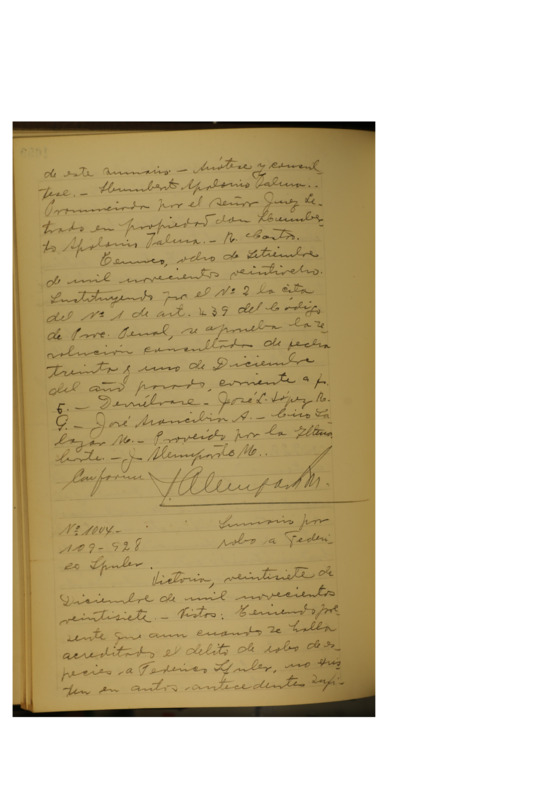 de este sumario. - Anótese y consúl-
tese. - Humberto Apolonio Palma. -
Pronunciada por el señor Juez Le-
trado en propiedad don Humber-
to Apolonio Palma. - R. Castro.
Temuco, ocho de Setiembre
de mil novecientos veintiocho.
Sustituyendo por el Nº 2 la cita
del Nº 1 de art. 439 del Código
de Proc. Penal, se aprueba la re-
solución consultada de fecha
treinta y uno de Diciembre
del año pasado, corriente a fs.
5. - Devuélvase - José L. López R.
G. - José Mancilla A. - Ciro Sa-
lazar M. - Proveído por la Iltma
Corte. - J. Alemparte M..
Conforme J. Alemparte M.
Nº 1004 - Sumario por
109-928 robo a Federi-
co Spuler.
Victoria, veintisiete de
Diciembre de mil novecientos
veintisiete. - Vistos: Teniendo pre-
sente que aun cuando se halla
acreditado el delito de robo de es-
pecies a Federico Spuler, no exis-
ten en autos antecedentes sufi-